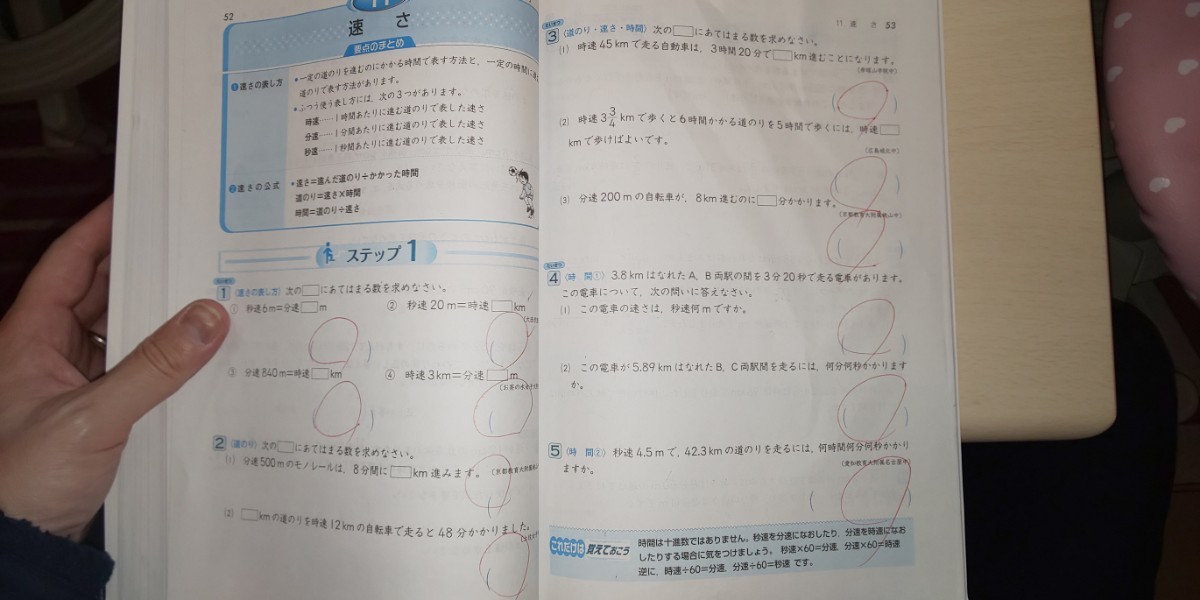 52
速さ
要点のまとめ
❶速さの表し方
●一定の道のりを進むのにかかる時間で表す方法と、一定の時間に
道のりで表す方法があります。
●ふつう使う表し方には、次の3つがあります。
時速……1時間あたりに進む道のりで表した速さ
分速……1分間あたりに進む道のりで表した速さ
秒速……1秒間あたりに進む道のりで表した速さ
❷速さの公式
●速さ=進んだ道のり÷かかった時間
道のり=速さ×時間
時間=道のり÷速さ
ステップ1
1 〈速さの表し方〉次の□にあてはまる数を求めなさい。
① 秒速6m=分速□m
② 秒速20m=時速□km
③ 分速840m=時速□km
④ 時速3km=分速□m
2 〈道のり〉次の□にあてはまる数を求めなさい。
(1) 分速500mのモノレールは、8分間に□km進みます。
(2) □kmの道のりを時速12kmの自転車で走ると48分かかりました。
11 速さ 53
3 〈道のり・速さ・時間〉次の□にあてはまる数を求めなさい。
(1) 時速45kmで走る自動車は、3時間20分で□km進むことになります。
(2) 時速3 3/4 kmで歩くと6時間かかる道のりを5時間で歩くには、時速□
kmで歩けばよいです。
(3) 分速200mの自転車が、8km進むのに□分かかります。
4 〈時間①〉3.8kmはなれたA、B両駅の間を3分20秒で走る電車があります。
この電車について、次の問いに答えなさい。
(1) この電車の速さは、秒速何mですか。
(2) この電車が5.89kmはなれたB、C両駅間を走るには、何分何秒かかります
か。
5 〈時間②〉秒速4.5mで、42.3kmの道のりを走るには、何時間何分何秒かかり
ますか。
(愛知教育大附属名古屋中)
これだけは覚えておこう
時間は十進数ではありません。秒速を分速になおしたり、分速を時速になお
したりする場合に気をつけましょう。秒速×60=分速、分速×60=時速
逆に、時速÷60=分速、分速÷60=秒速 です。